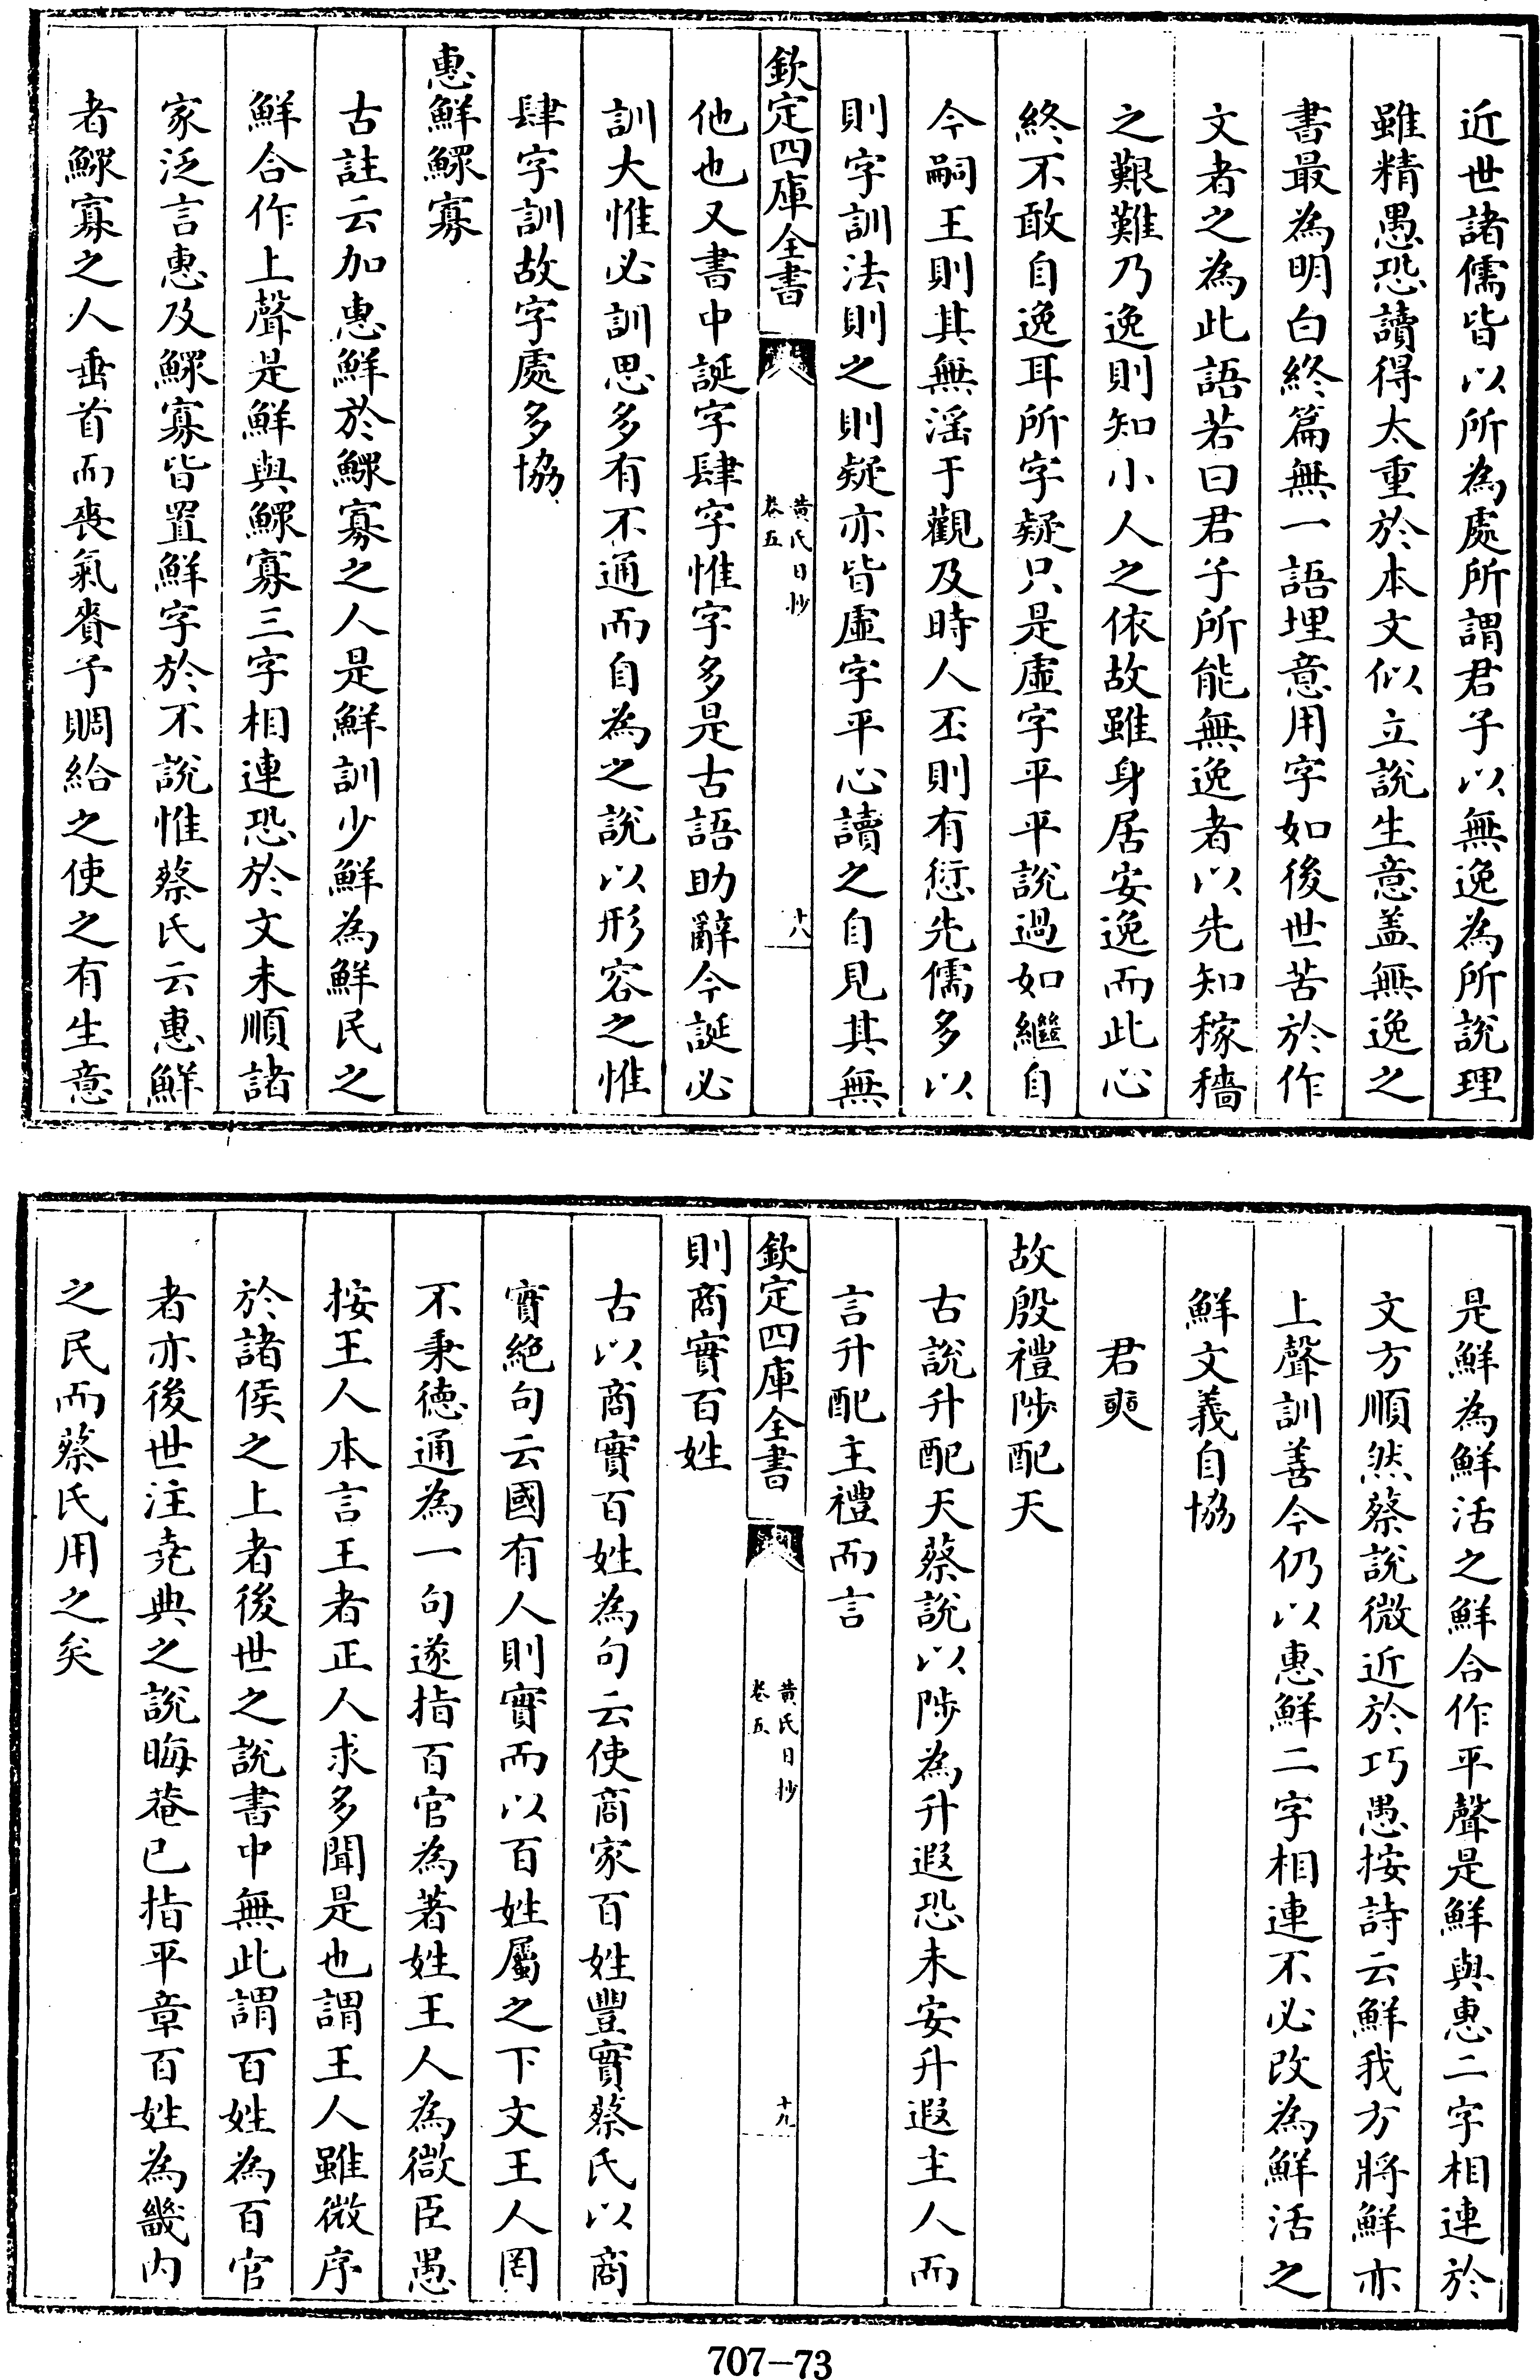 近世諸儒皆以所為處所謂君子以無逸為所說理
雖精愚恐讀得太重於本文似立說生意蓋無逸之
書最為明白終篇無一語埋意用字如後世苦於作
文者之為此語若曰君子所能無逸者以先知稼穡
之艱難乃逸則知小人之依故雖身居安逸而此心
終不敢自逸耳所字疑只是虛字平平說過如繼自
今嗣王則其無淫于觀及時人丕則有愆先儒多以
則字訓法則之則疑亦皆虛字平心讀之自見其無
欽定四庫全書
黃氏日抄
卷五
十八
他也又書中誕字肆字惟字多是古語助辭今誕必
訓大惟必訓思多有不通而自為之說以形容之惟
肆字訓故字處多協
惠鮮鰥寡
古註云加惠鮮於鰥寡之人是鮮訓少鮮為鮮民之
鮮合作上聲是鮮與鰥寡三字相連恐於文未順諸
家泛言惠及鰥寡皆置鮮字於不說惟蔡氏云惠鮮
者鰥寡之人垂首而喪氣賚予賙給之使之有生意
是鮮為鮮活之鮮合作平聲是鮮與惠二字相連於
文方順然蔡說微近於巧愚按詩云鮮我方將鮮亦
上聲訓善今仍以惠鮮二字相連不必改為鮮活之
鮮文義自協
君奭
故殷禮陟配天
古說升配天蔡說以陟為升遐恐未安升遐主人而
言升配主禮而言
欽定四庫全書
黃氏日抄
卷五
十九
則商實百姓
古以商實百姓為句云使商家百姓豐實蔡氏以商
實絕句云國有人則實而以百姓屬之下文王人罔
不秉德通為一句遂指百官為著姓王人為微臣愚
按王人本言王者正人求多聞是也謂王人雖微序
於諸侯之上者後世之說書中無此謂百姓為百官
者亦後世注堯典之說晦菴已指平章百姓為畿內
之民而蔡氏用之矣
707-73